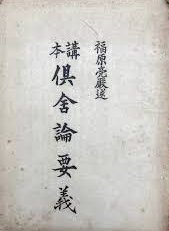 福原亮嚴述
講本
俱舍論要義